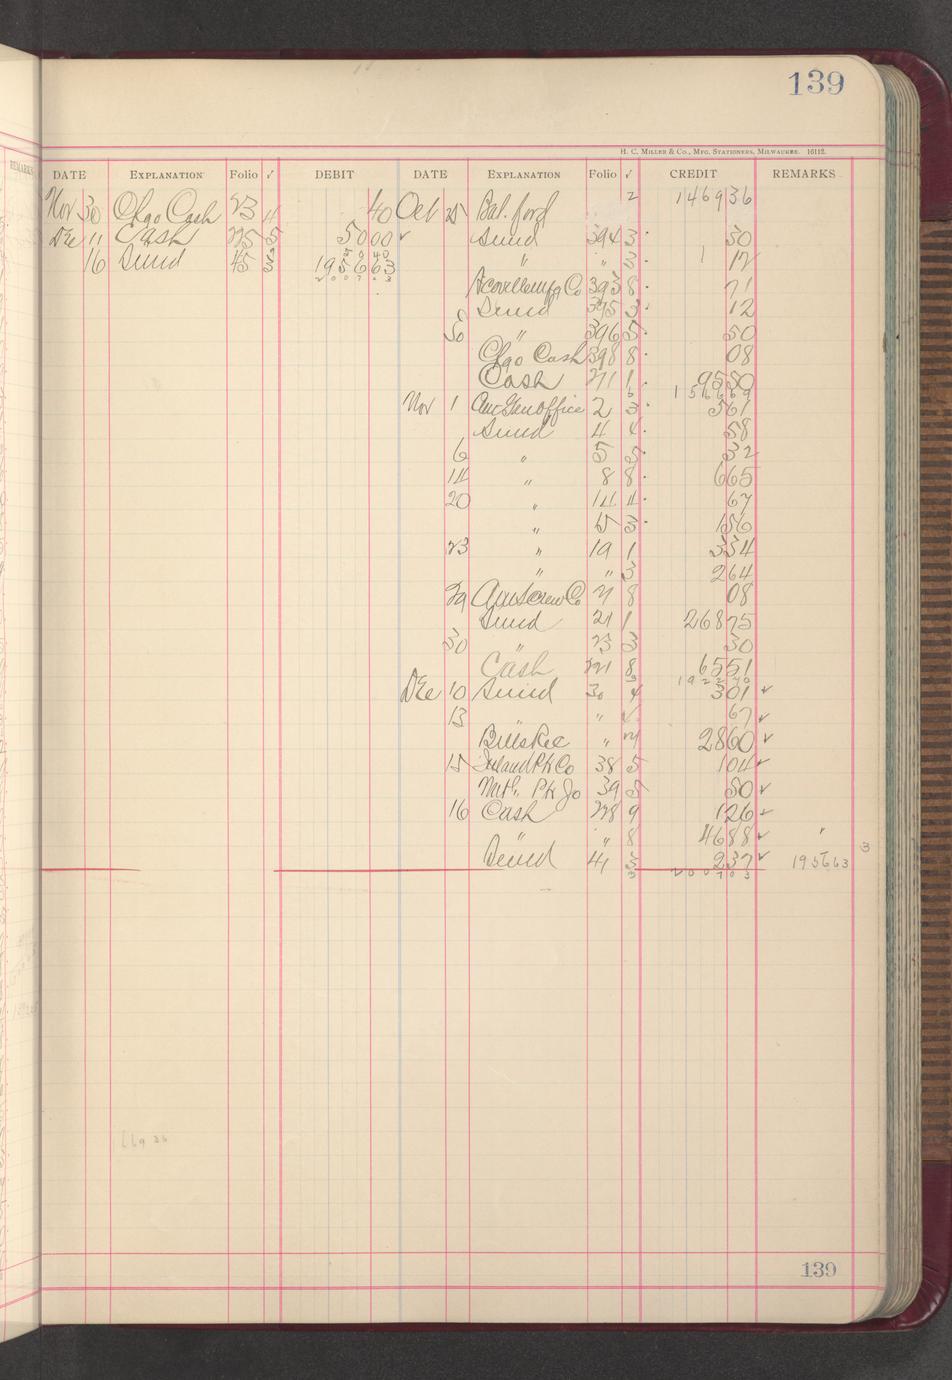 139
H. C. Miller & Co., Mfg. Stationers, Milwaukee. 16112.
REMARKS
DATE EXPLANATION Folio ✓ DEBIT DATE EXPLANATION Folio ✓ CREDIT REMARKS
Nov 30 Chgo Cash 23 4 40 Oct 25 Bal. ford 2 1469 36
Dec 11 Cash 225 5 50 00 ✓ Sund 394 3 50
16 Sund 45 3 1956 63 " " 3 12
50 40
2007 03
Scovillemfg Co 393 8 71
Sund 395 3 12
30 " 396 5 50
Chgo Cash 398 8 08
Cash 211 1 95 50
6 1566 69
Nov 1 Am Genoffice 2 3 5 61
Sund 4 4 58
6 " 5 5 32
14 " 8 8 6 65
20 " 14 4 67
" 15 3 1 56
23 " 19 1 3 34
" " 3 2 64
29 Am Screw Co 21 8 08
Sund 21 1 268 75
30 " 23 3 30
Cash 221 8 65 51
3 1922 70
Dec 10 Sund 30 4 3 01 ✓
13 " " ✓ 67 ✓
Bills Rec " 28 60 ✓
15 Inland Ptr Co 38 5 1 04 ✓
Natl. Ptr Jo 39 5 50 ✓
16 Cash 228 9 1 26 ✓
" " 8 46 88 ✓ "
Sund 41 3 2 37 ✓ 1956 63
3
3 2007 03
139